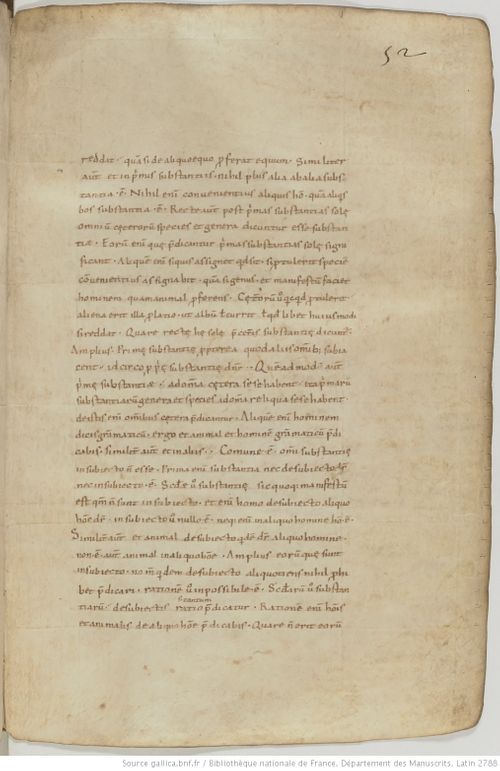 52
reddit· quasi de aliquo equo p̱ferat equum· Similiter
aut̄ et in p̱mis substantiis· nihil plus alia ab alia subs
tantia· ē· Nihil eni͞ convenientius aliquis ho͞· qua͞ aliq̱s
bos substantia· ē· Recte aut̄ post p̱mas substantias solę
omniu͞ cęterorum species et genera dicuntur esse substan
tię· Eorum eni͞ quę p̱dicantur p̱mas substantias solę signi
ficant· Aliquē eni͞ si quis assignet
convenientius assignabit· qua͞ si genus· et manifestu͞ faciet
hominem quam animal p̱ferens·
aliena erit illa platio· ut albu͞ t̄ currit
si reddat· Quare recte hę solę p̱ cęteris substantię dicunt̄·
Amplius· Primę substantię p̱pterea quod aliis omnib; subia
cent· idcirco p̱pę substantię dn̄r·· Quēadmodū aut̄
p̱mę substantiae ad om̄ia cętera sese habent· ita p̱maru͞
substantiaru͞ genera et species ad om̄ia reliqua sese habent·
de istis eni͞ omnibus cętera p̱dicantur· Aliquē eni͞ hominem
dicis gra͞maticu͞· ergo et animal et homine͞ gra͞maticu͞ p̱di
cabis· similit̄ aut̄ et in aliis·· Comune· ē· omi substantię
in subiecto n̄ esse· Prima eni͞ substantia nec de subiecto
nec in subiecto· ē· Scd̄ę ū substantię sic quoq; manifestu͞
est qm̄ n̄ sunt in subiecto· et eni͞ homo de subiecto aliquo
ho͞e dr̄· in subiecto ū nullo· ē· neq; eni͞ in aliquo homine ho͞· ē·
Similit̄ aut̄ et animal de subiecto qdē dr̄ aliquo homine·
non· ē· aut̄ animal in aliquo ho͞e· Amplius eorum quę sunt
in subiecto· nom̄ qdem de subiecto aliquotiens nihil p̱hi
bet p̱dicari· ratione͞ ū inpossibile· ē· Scd̄aru͞ ū substan
tiarū· de subiectis ratio p̱dicatur· Ratione͞ eni͞ ho͞is
et animalis de aliquo ho͞e p̱dicabis· Quare n̄ erit eoru͞